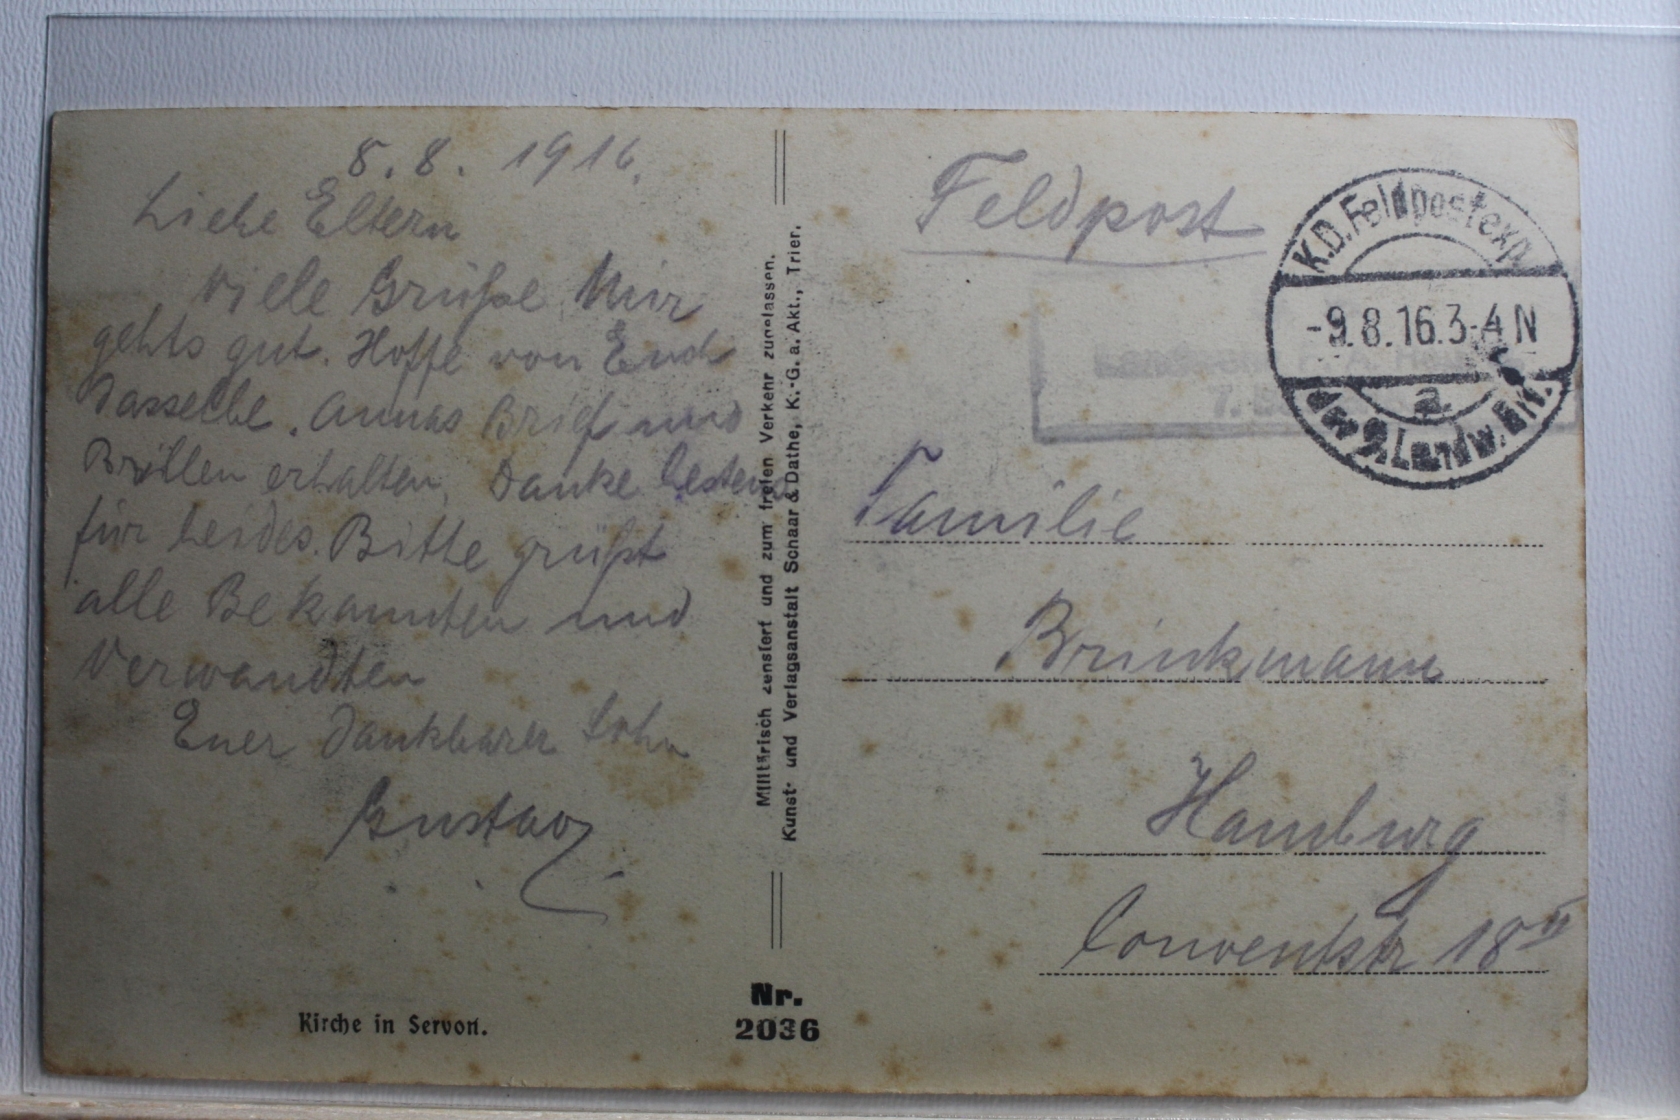 8.8.1916.
Liebe Eltern
Viele Grüße Mir
gehts gut. Hoffe von Euch
dasselbe. Annas Brief und
Brillen erhalten, Danke bestens
für beides. Bitte grüßt
alle Bekannten und
Verwandten
Euer dankbarer Sohn
Gustav
Kirche in Servon.
Militärisch zensiert und zum freien Verkehr zugelassen.
Kunst- und Verlagsanstalt Schaar & Dathe, K.-G. a. Akt., Trier.
Nr.
2036
Feldpost
K.D. Feldpostexp.
-9.8.16.3-4 N
a
der 9. Landw. Div.
7.
Familie
Brinkmann
Hamburg
Conventstr 18 II